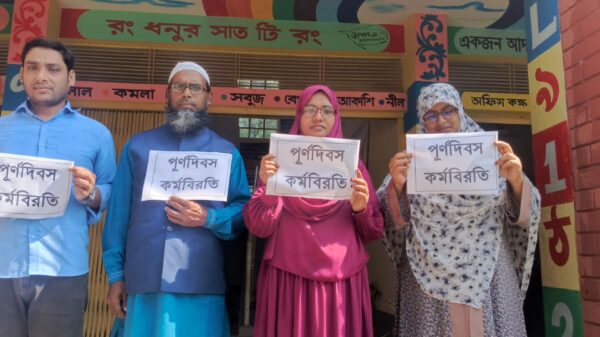 রং ধনুর সাত টি রং
একজন আদ
লাল
কমলা
সবুজ
আকাশি
নীল
অফিস কক্ষ
পূর্ণদিবস
কর্মবিরতি
পূর্ণদিবস
কর্মবিরতি
পূর্ণদিবস
কর্মবিরতি
পূর্ণদিবস
কর্মবিরতি